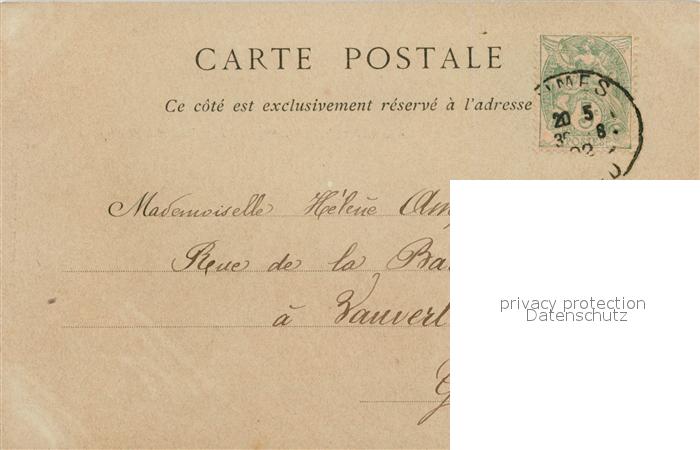 CARTE POSTALE
Ce côté est exclusivement réservé à l'adresse
5
20 5
8
Mademoiselle Hélène
Rue de la
à Vauvert
privacy protection
Datenschutz